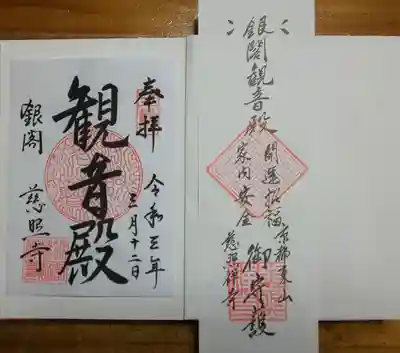 奉拝
令和三年
三月十二日
観音殿
銀閣
慈照寺
銀閣観音殿
開運招福
家内安全
京都東山
慈照禅寺
御守護